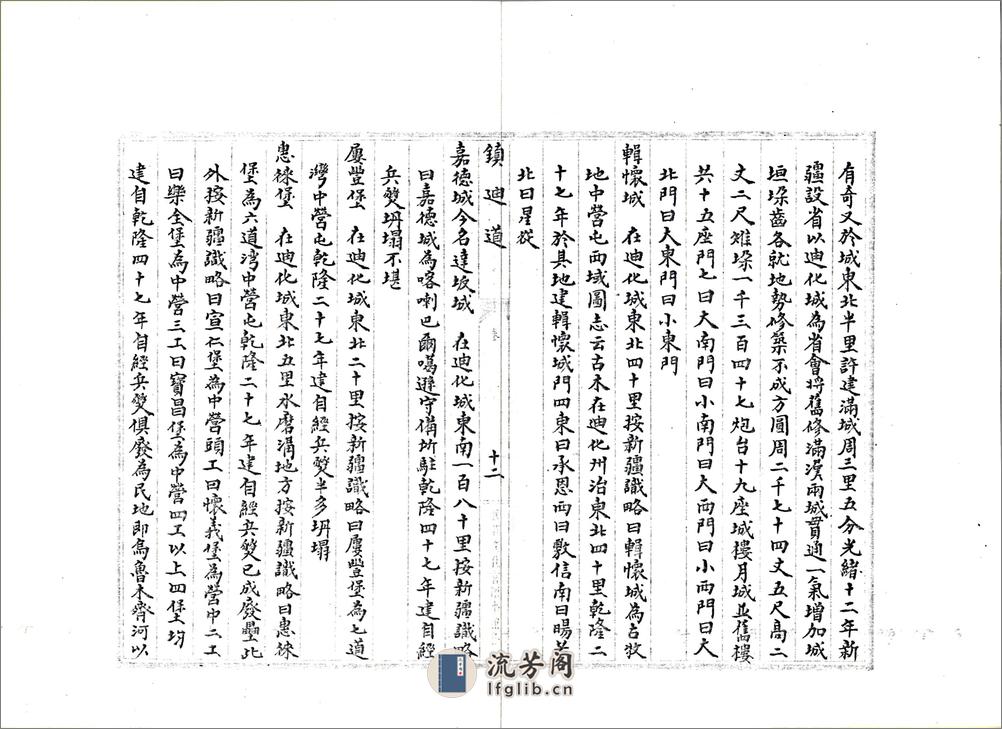 有奇又於城東北半里許建滿城周三里五分光緒十二年新
疆設省以迪化城為省會將舊修滿漢兩城貫通一氣增加城
垣垛齒各就地勢修築不成方圓周二千七十四丈五尺高二
丈二尺雉垛一千三百四十七炮台十九座城樓月城並舊樓
共十五座門七曰大南門曰小南門曰大西門曰小西門曰大
北門曰大東門曰小東門
輯懷城 在迪化城東北四十里按新疆識略曰輯懷城為古牧
地中營屯西域圖志云古木在迪化州治東北四十里乾隆二
十七年於其地建輯懷城門四東曰承恩西曰敷信南曰暘
北曰星從
鎮迪道 十二
嘉德城今名達坂城 在迪化城東南一百八十里按新疆識略
曰嘉德城為喀喇巴爾噶遜守備所駐乾隆四十七年建自經
兵燹坍塌不堪
屢豐堡 在迪化城東北二十里按新疆識略曰屢豐堡為七道
灣中營屯乾隆二十七年建自經兵燹半多坍塌
惠徠堡 在迪化城東北五里水磨溝地方按新疆識略曰惠徠
堡為六道灣中營屯乾隆二十七年建自經兵燹已成廢壘此
外按新疆識略曰宣仁堡為中營頭工曰懷義堡為營中二工
曰樂全堡為中營三工曰寶昌堡為中營四工以上四堡均
建自乾隆四十七年自經兵燹俱廢為民地即烏魯木齊河以
流芳阁
lfglib.cn